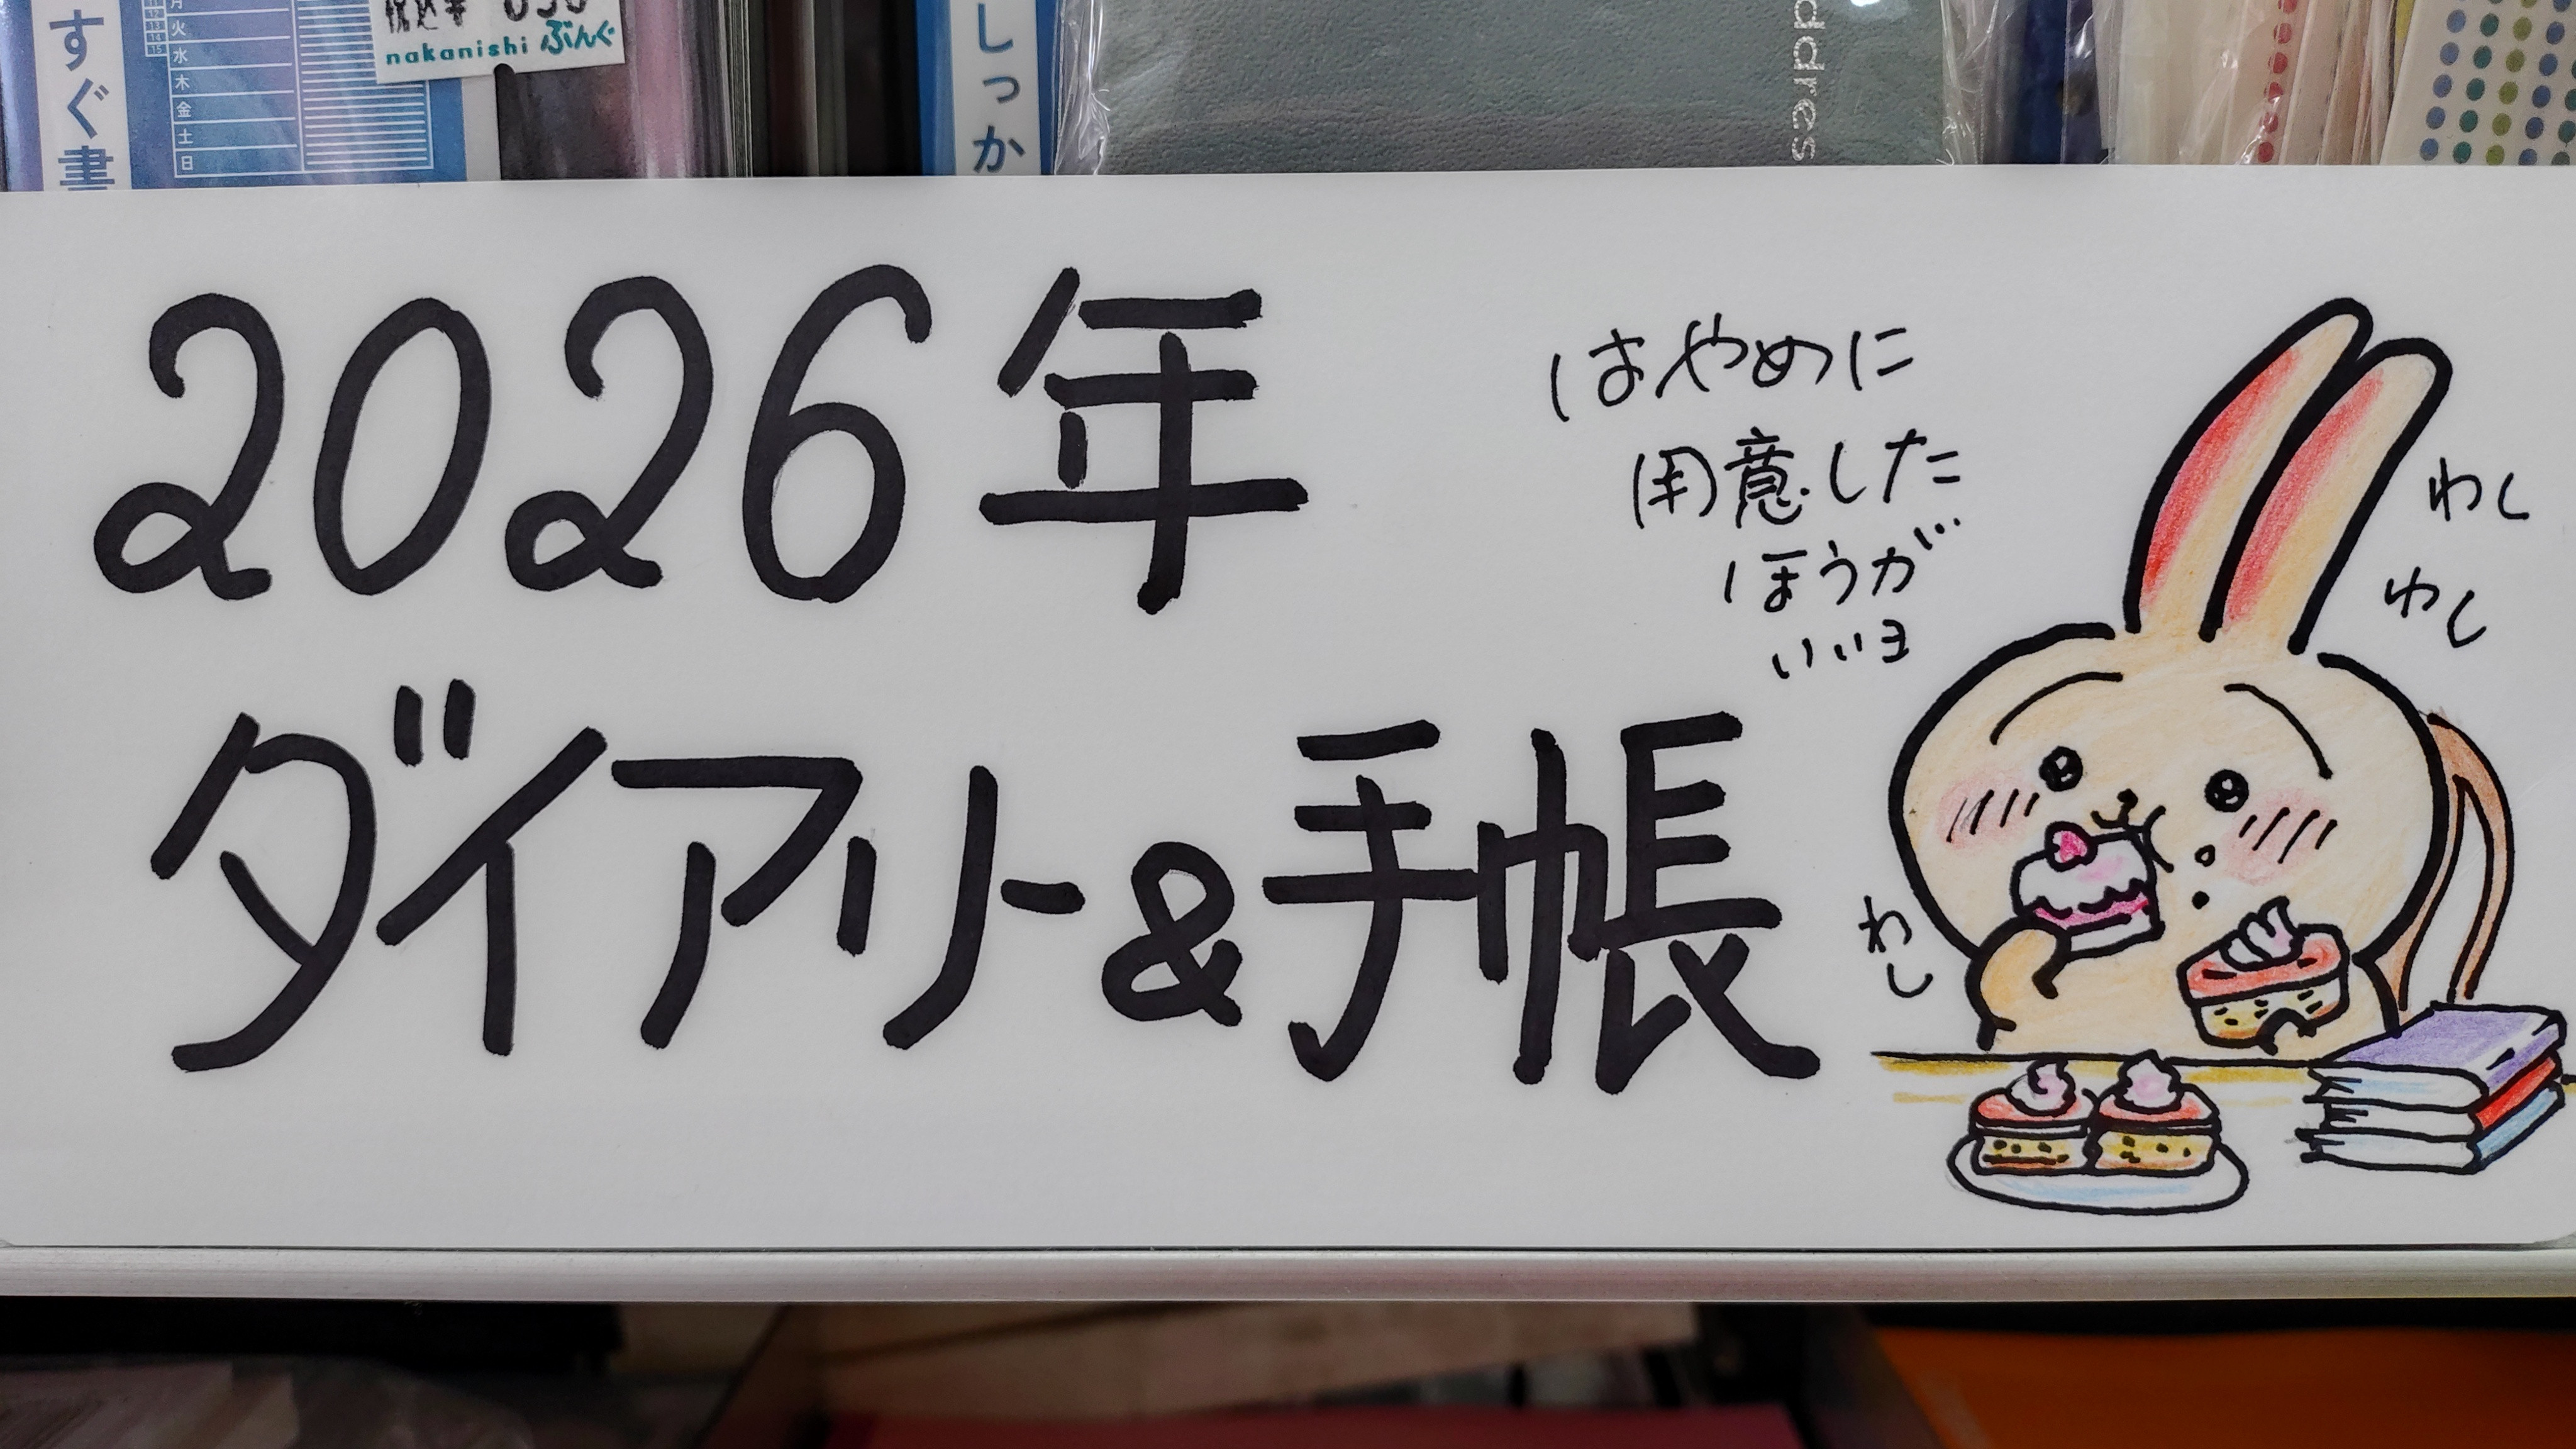 すぐ書
月
火
水
木
金
土
日
税込¥
nakanishi ぶんぐ
しっか
ddress
2026年
ダイアリー&手帳
はやめに
用意した
ほうが
いいヨ
わし
わし
わし